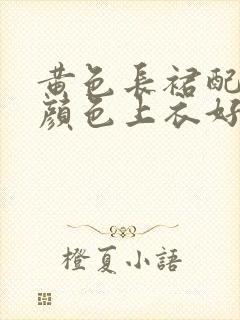 黃色長裙配
顏色上衣好
橙夏小語